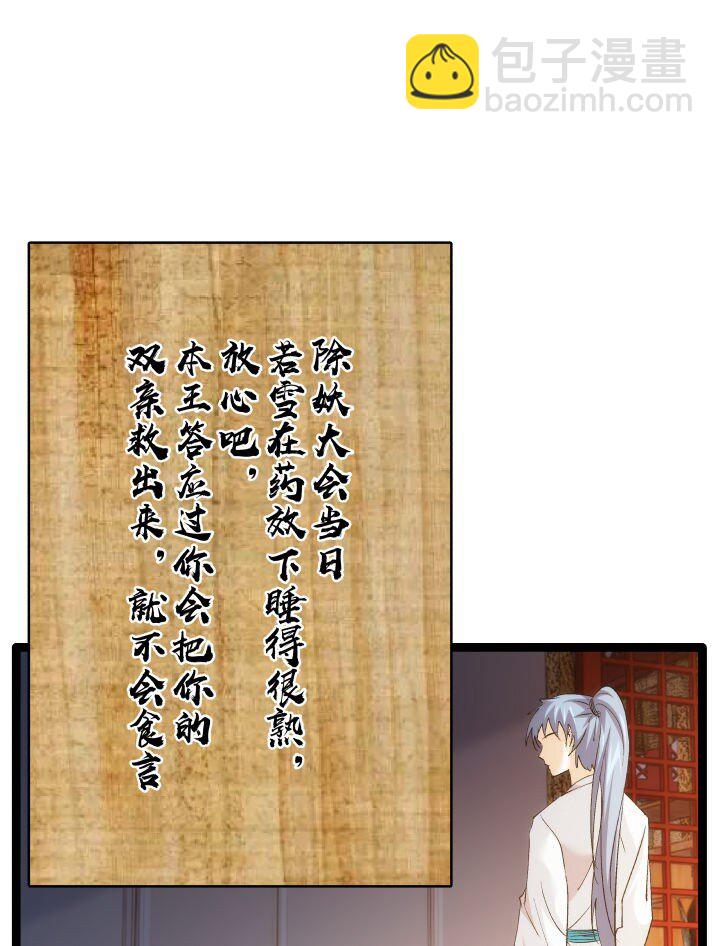 包子漫畫
baozimh.com
除妖大会当日
若雪在药效下睡得很熟，
放心吧，
本王答应过你会把你的
双亲救出来，就不会食言